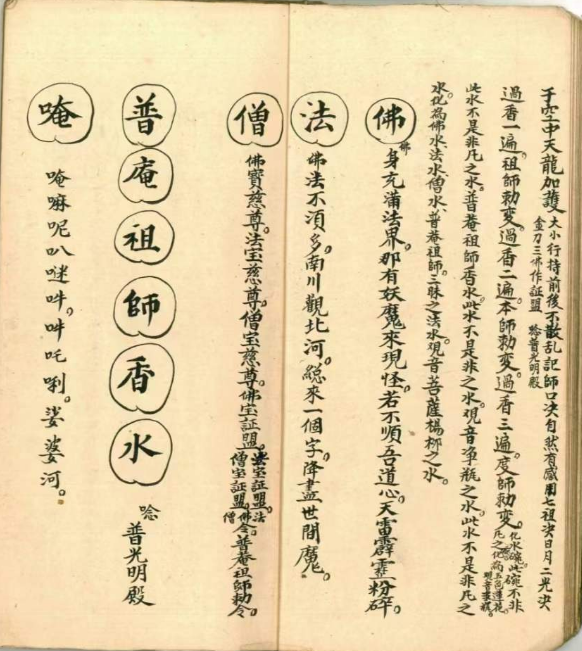 于空中天龍加護大小行持前後不散乱記師口決自然有感用七祖決日月二光決
金刀三佛作証盟 唸普光明殿
過香一遍。祖師勅变。過香二遍。本師勅变。過香三遍。度師勅变。化水碗。此碗不非
凡之化為五色蓮花。
此水不是非凡之水。普菴祖師香水。此水不是非之水。观音净瓶之水。此水不是非凡之
水。化為佛水法水僧水。普菴祖師三昧之法水。观音菩薩楊柳之水。
佛 佛身充滿法界。那有妖魔來現怪。若不順吾道心。天雷霹靂粉碎。
法 佛法不須多。南川觀北河。総來一個字。降盡世間魔。
僧 佛寳慈尊。法宝慈尊。僧宝慈尊。佛宝証盟。法宝証盟。僧宝証盟。佛令。法僧令。普菴祖師勅令。
普庵祖師香水 唸普光明殿
唵 唵嘛呢叭㖿吽。吽吒唎。娑婆河。